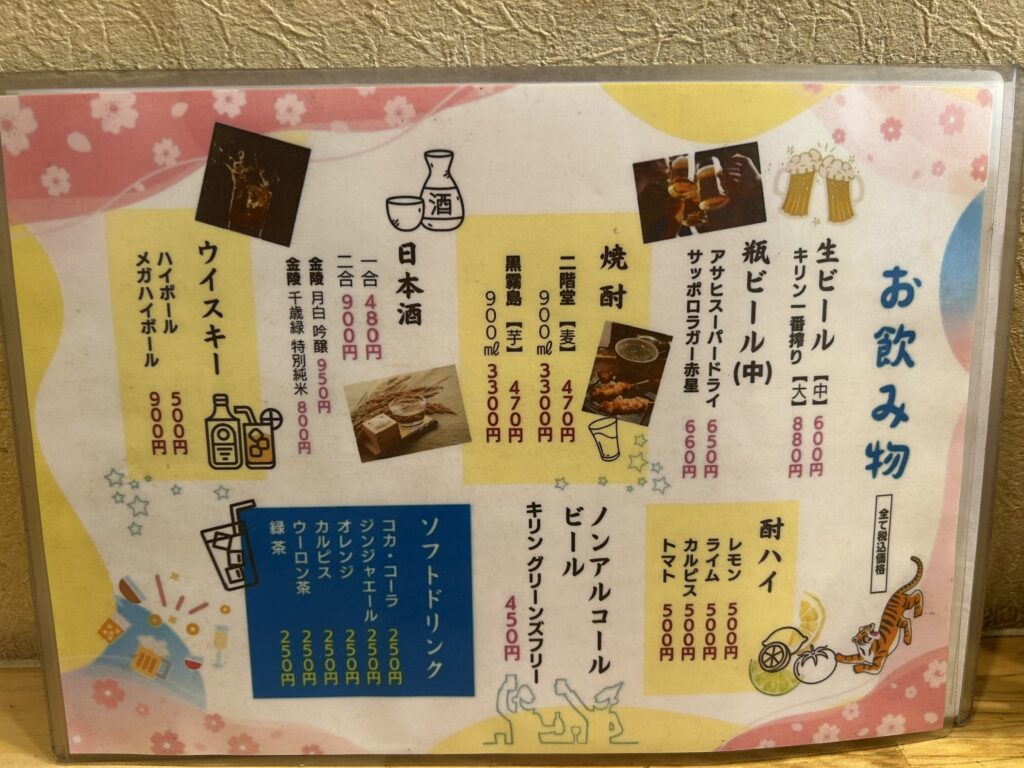 お飲み物
全て税込価格
生ビール
【中】600円
キリン一番搾り【大】880円
瓶ビール(中)
アサヒスーパードライ 650円
サッポロラガー赤星 660円
焼酎
二階堂【麦】 470円
900㎖ 3300円
黒霧島【芋】 470円
900㎖ 3300円
酒
日本酒
一合 480円
二合 900円
金陵 月白 吟醸 950円
金陵 千歳緑 特別純米 800円
ウイスキー
ハイボール 500円
メガハイボール 900円
酎ハイ
レモン 500円
ライム 500円
カルピス 500円
トマト 500円
ノンアルコール
ビール
キリン グリーンズフリー
450円
ソフトドリンク
コカ・コーラ 250円
ジンジャエール 250円
オレンジ 250円
カルピス 250円
ウーロン茶 250円
緑茶 250円